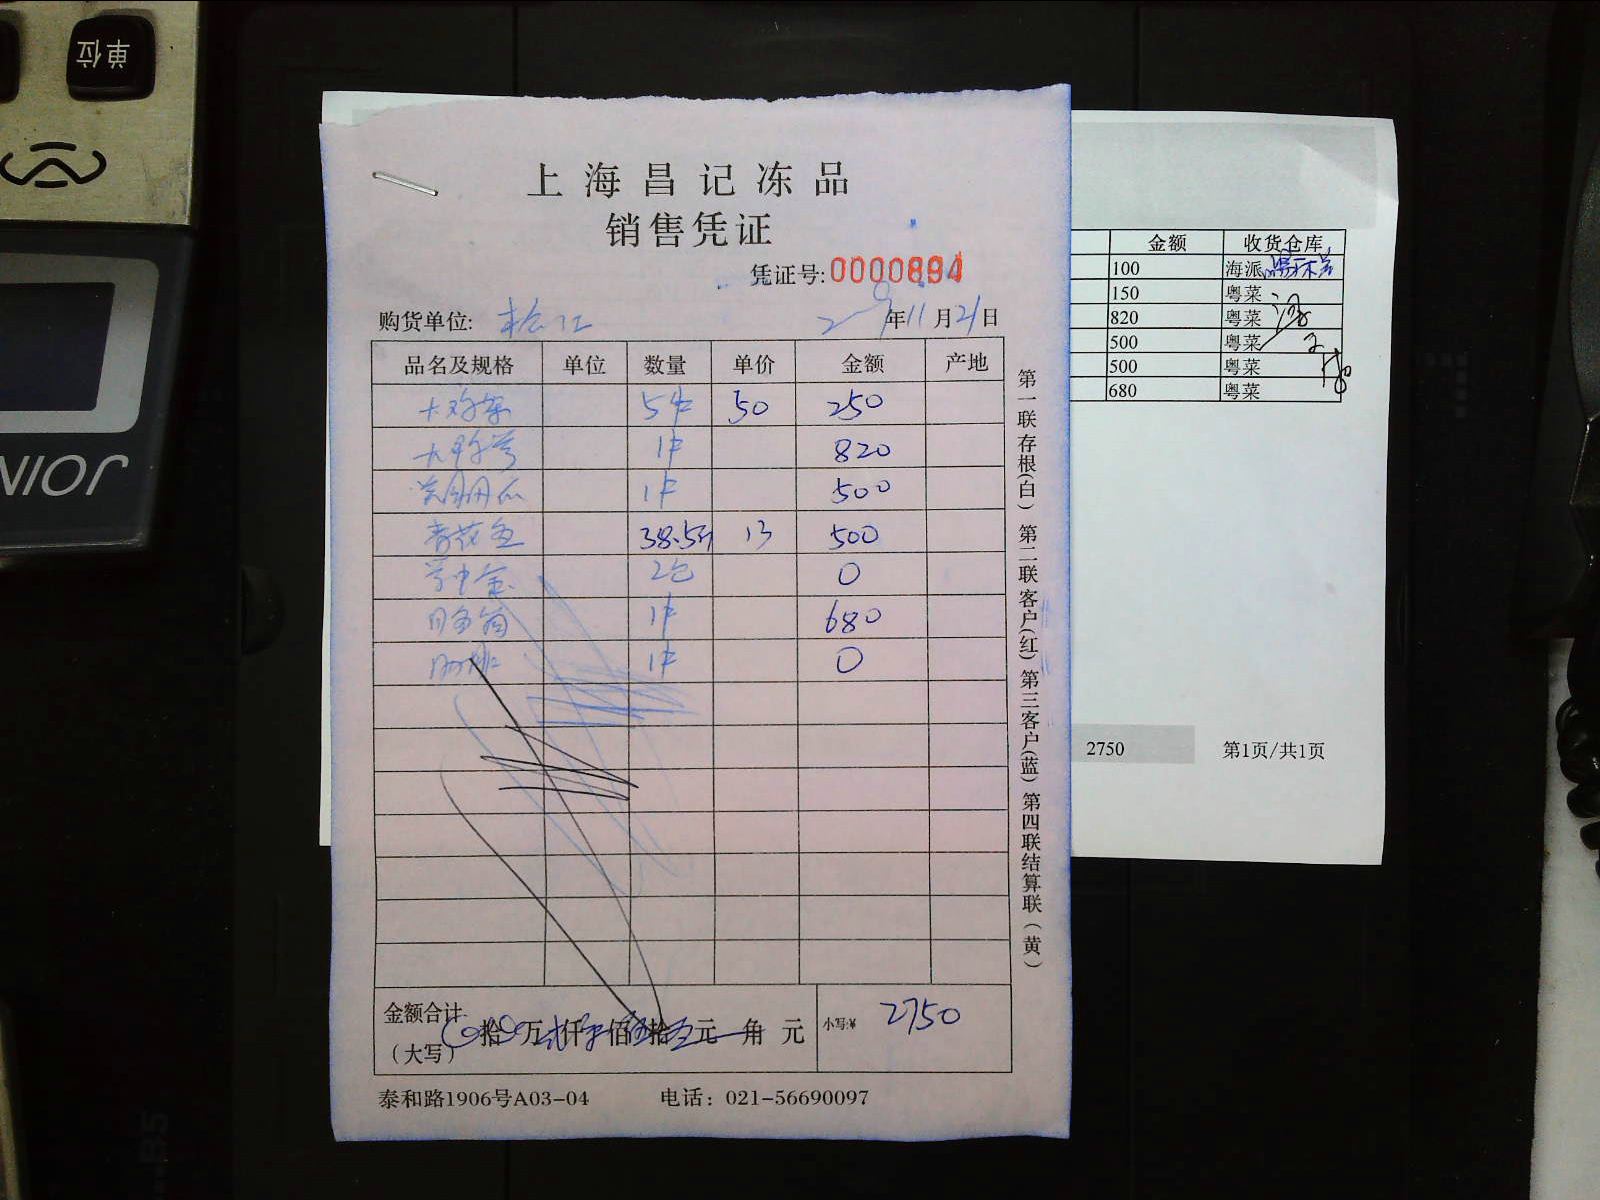 单位
上海昌记冻品
销售凭证
凭证号:0000894
购货单位: 松江 2019年11月21日
品名及规格 单位 数量 单价 金额 产地
5件 50 250
1件 820
1件 500
青花鱼 38.5斤 13 500
2包 0
1件 680
1件 0
金额合计 拾 万 仟 佰 拾 元 角 元
(大写)
小写:¥ 2750
泰和路1906号A03-04 电话: 021-56690097
第一联存根(白) 第二联客户(红) 第三客户(蓝) 第四联结算联(黄)
金额 收货仓库
100 海派
150 粤菜
820 粤菜
500 粤菜
500 粤菜
680 粤菜
2750 第1页/共1页
JOIN